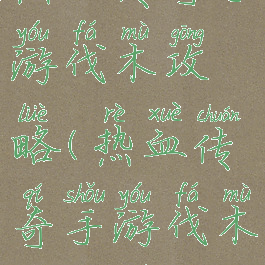 yóu fá mù gōng
游伐木攻
lüè rè xuè chuán
略(热血传
qí shǒu yóu fá mù
奇手游伐木